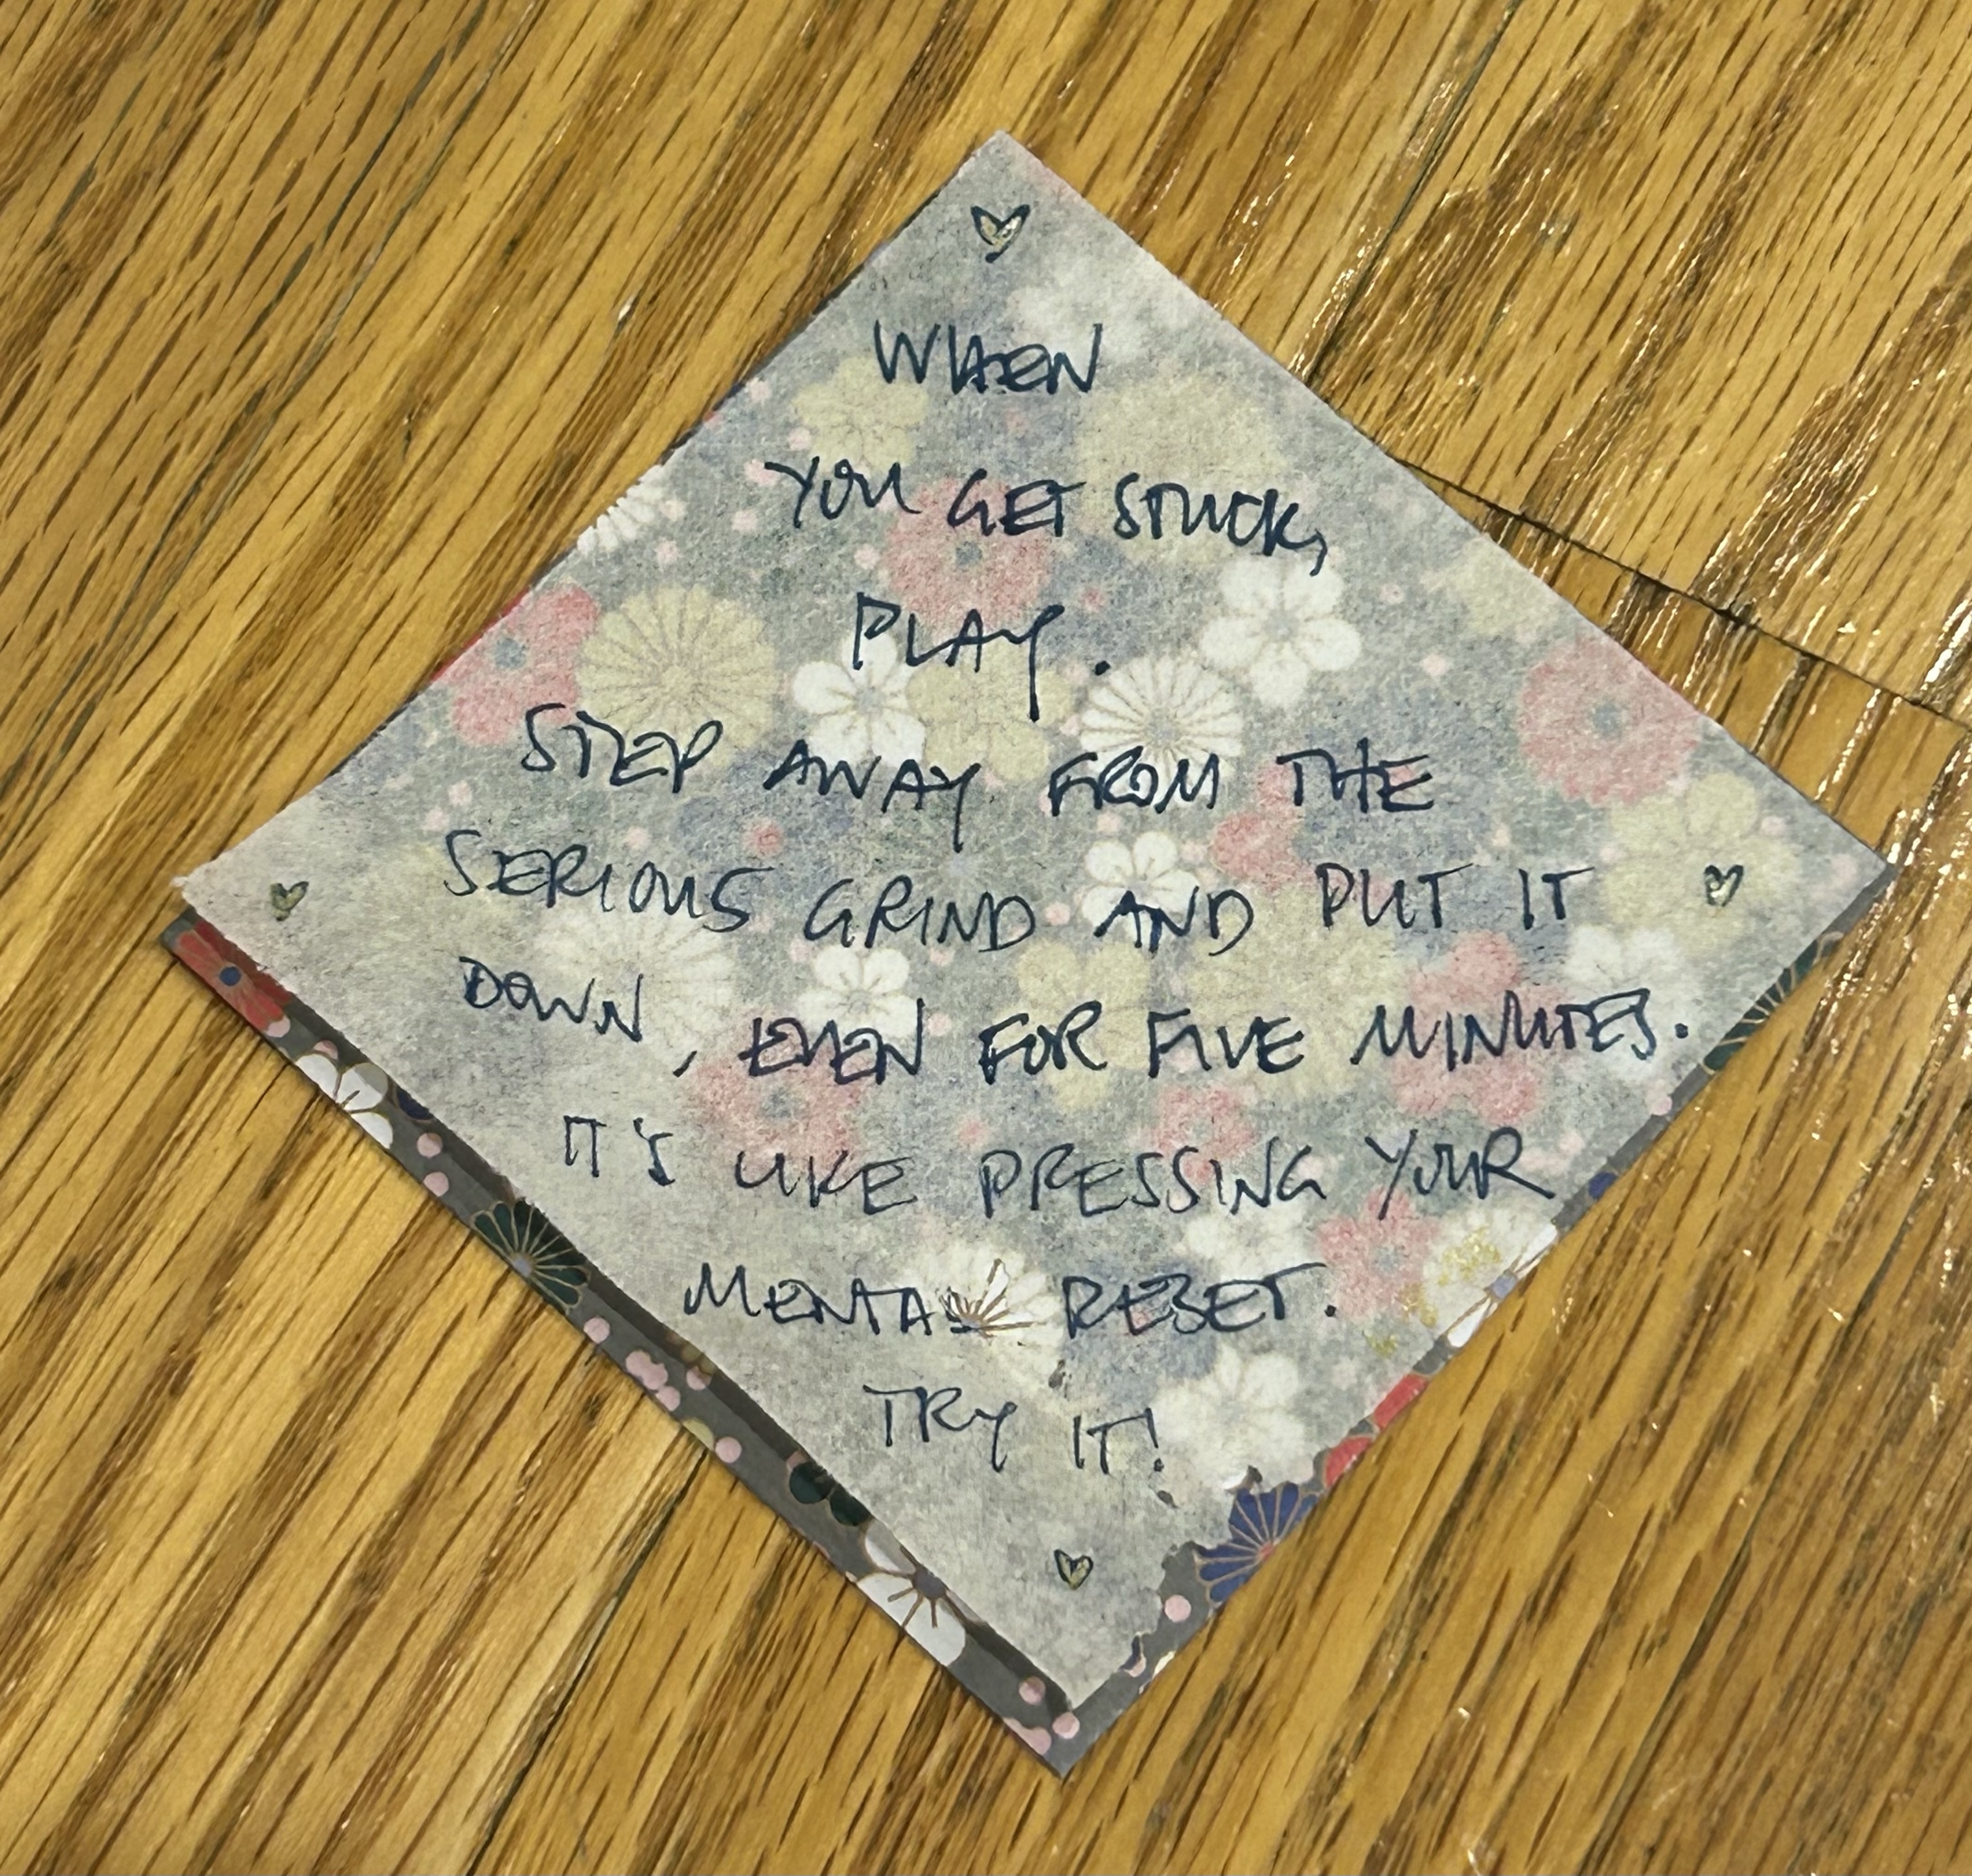 WHEN
YOU GET STUCK,
PLAY.
STEP AWAY FROM THE
SERIOUS GRIND AND PUT IT
DOWN, EVEN FOR FIVE MINUTES.
IT'S LIKE PRESSING YOUR
MENTAL RESET.
TRY IT!